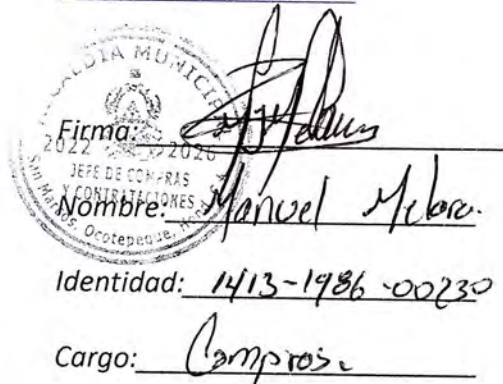 ALCALDIA MUNICIPAL
Firma:
2022 2026
JEFE DE COMPRAS
Y CONTRATACIONES
San Marcos, Ocotepeque,
Nombre: Manuel Melara.
Identidad: 1413-1986-00230
Cargo: Compras.